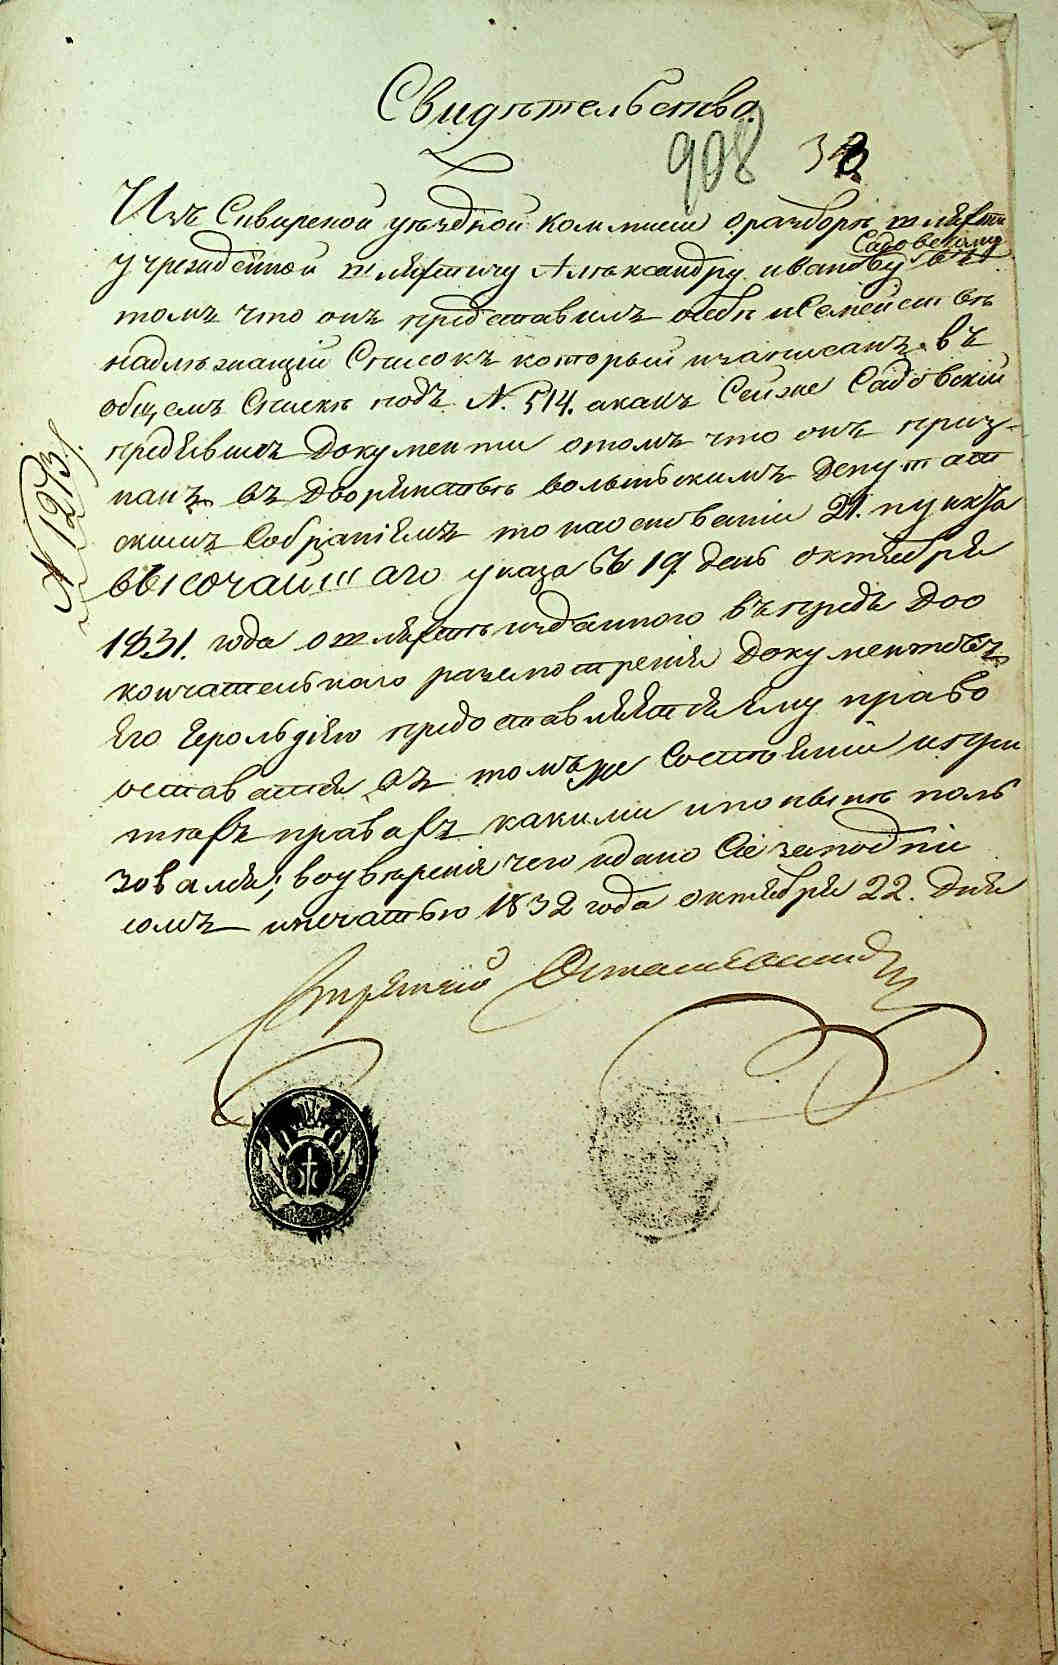 Свидѣтельство.
908 38
Изъ Сквирской уѣздной коммисіи о разборѣ шляхты
Садовскому
учрежденной шляхтичу Алѣксандру иванову въ
томъ что онъ представилъ о себѣ и Семействѣ
надлѣжащій Списокъ который и записанъ въ
общемъ Спискѣ подъ N. 514. а какъ Сейже Садовскій
предъявилъ Документы о томъ что онъ приз-
нанъ въ Дворянствѣ волынскимъ Депутат
скимъ Собраніемъ то на основаніи 21. пункта
ВЫСОЧАЙШАГО указа въ 19. день октября
N 1273.
1831. года о шляхтѣ изданного впредъ До о
кончательнаго разсмотренія Документовъ
Его Герольдіею предоставляется Ему право
оставатся въ томъже Состояніи и при
тѣхъ правахъ какими и по нынѣ поль
зовался; во увѣреніе чего и дано Сіе за подпи
сомъ и печатью 1832 года октября 22. Дня